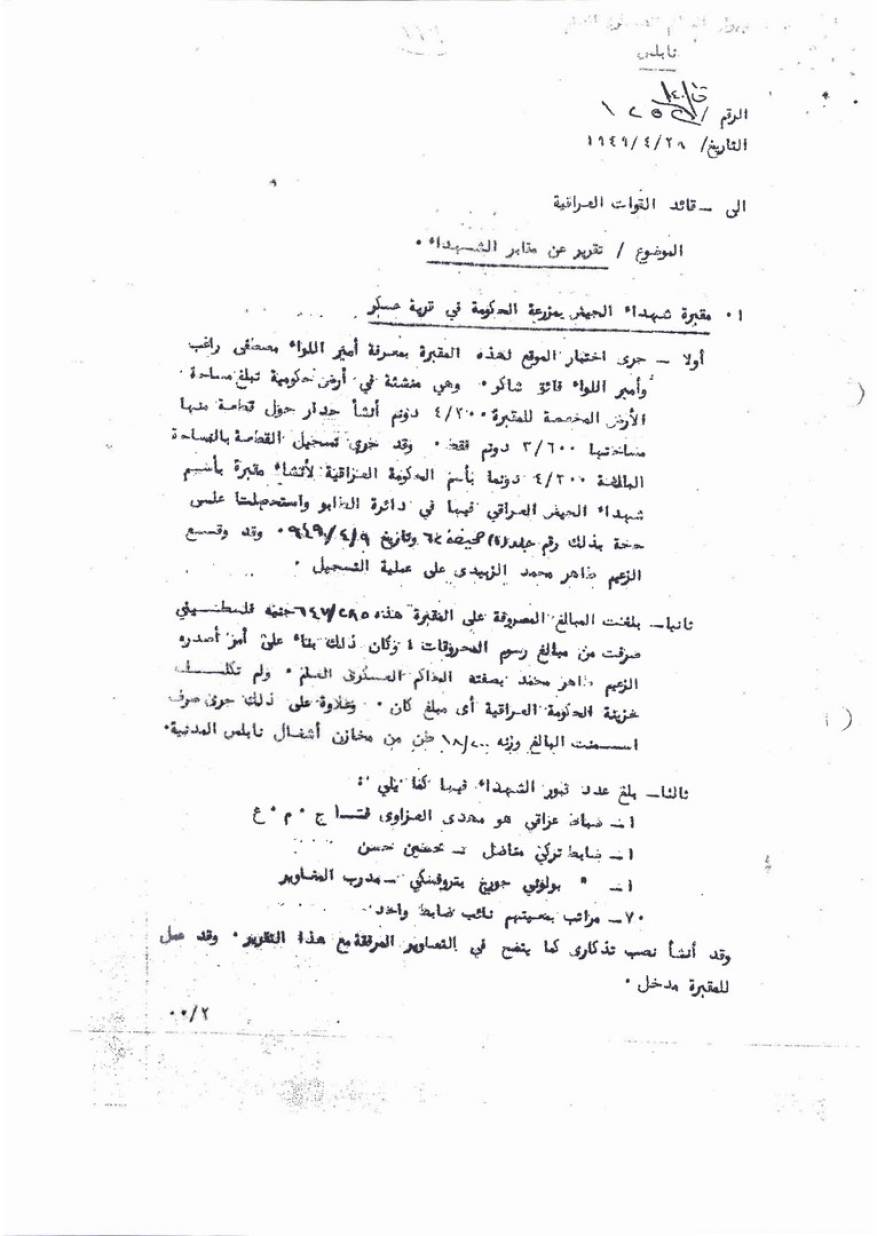 نابلس
الرقم /
التاريخ/ ٢٨/ ٤/ ١٩٤٩
الى – قائد القوات العراقية
الموضوع / تقرير عن مقابر الشهداء ٠
١٠ مقبرة شهداء الجيش بمزرعة الحكومة في قرية عسكر
أولا – جرى اختيار الموقع لهذه المقبرة بمعرفة أمير اللواء مصطفى راغب
وأمير اللواء فائق شاكر ٠ وهي منشئة في أرض حكومية تبلغ مساحة
الأرض المخصصة للمقبرة ٤/٢٠٠ دونم أنشأ جدار حول قطعة منها
مساحتها ٣/٦٠٠ دونم فقط ٠ وقد جرى تسجيل القطعة بالمساحة
البالغة ٤/٢٠٠ دونما بأسم الحكومة العراقية لأنشاء مقبرة بأسم
شهداء الجيش العراقي فيها في دائرة الطابو واستحصلت على
حجة بذلك رقم جلد (٤) صحيفة ٦٤ وتاريخ ٩/ ٤/ ٩٤٩ ٠ وقد وقع
الزعيم طاهر محمد الزبيدى على عملية التسجيل ٠
ثانيا – بلغت المبالغ المصروفة على المقبرة هذه ٦٤٧/٢٨٥ جنيه فلسطيني
صرفت من مبالغ رسوم المحروقات ؛ وكان ذلك بناء على أمر أصدره
الزعيم طاهر محمد بصفته الحاكم العسكرى العام ٠ ولم تكلف
خزينة الحكومة العراقية أى مبلغ كان ٠ وعلاوة على ذلك جرى صرف
اسمنت البالغ وزنه ١٨/٢٠٠ طن من مخازن أشغال نابلس المدنية ٠
ثالثا – بلغ عدد قبور الشهداء فيها كما يلي :
١– ضابط عراقي هو مهدى العزاوى ف ١ ج ٠ م ٠ ع
١– ضابط تركي مناضل – تحسين حسن
١– " بولوني جورج بتروفسكي – مدرب المغاوير
٧٠– مراتب بمعيتهم نائب ضابط واحد
وقد أنشأ نصب تذكارى كما يتضح في التصاوير المرفقة مع هذا التقرير ٠ وقد عمل
للمقبرة مدخل ٠
٠٠/٢